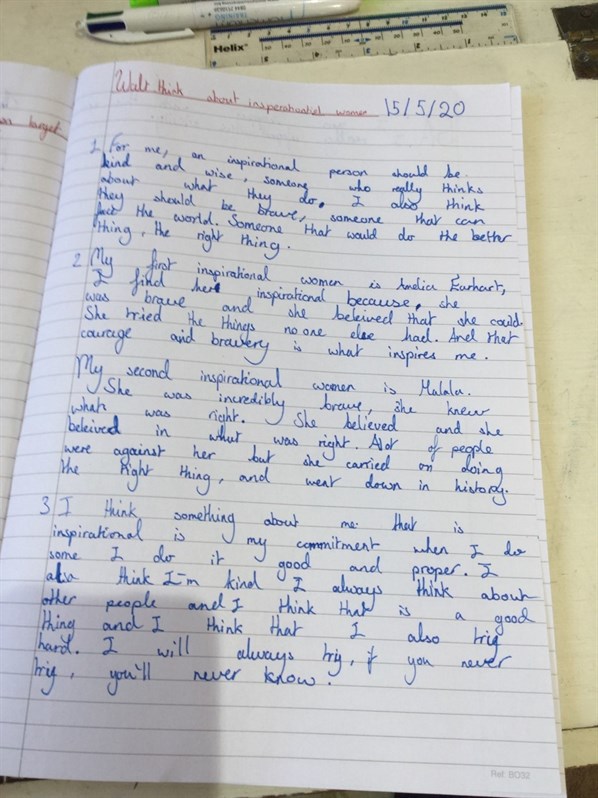 Helix
as target
Walt think about insperahoatiel women 15/5/20
1 For me, an inspirational person should be
kind and wise, someone who really thinks
about what they do. I also think
they should be brave, someone that can
the world. Someone that would do the better
thing, the right thing.
2 My first inspirational women is Amelia Earhart,
I find her inspirational because, she
was brave and she beleived that she could.
She tried the things no one else had. And that
courage and bravery is what inspires me.
My second inspirational women is Malala.
She was incredibly brave, she knew
what was right. She believed and she
beleived in what was right. Alot of people
were against her but she carried on doing
the right thing, and went down in history.
3 I think something about me that is
inspirational is my commitment when I do
some I do it good and proper. I
also think I'm kind I always think about
other people and I think that is a good
thing and I think that I also trig
hard. I will always trig, if you never
trig, you'll never know.
Ref: BO32